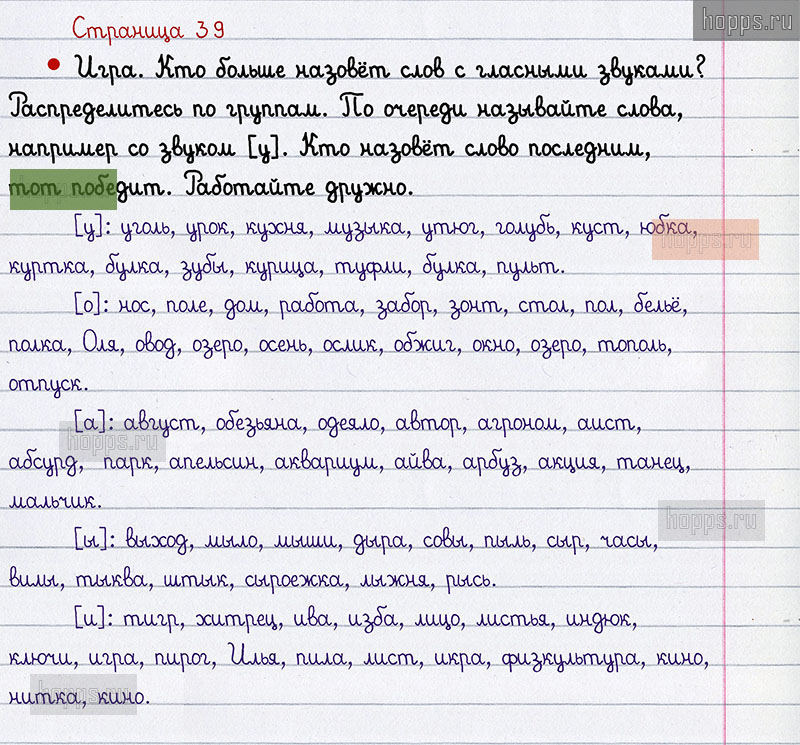 hopps.ru
Страница 39
• Игра. Кто больше назовёт слов с гласными звуками?
Распределитесь по группам. По очереди называйте слова,
например со звуком [у]. Кто назовёт слово последним,
тот победит. Работайте дружно.
[у]: уголь, урок, кухня, музыка, утюг, голубь, куст, юбка,
hopps.ru
куртка, булка, зубы, курица, туфли, булка, пульт.
[о]: нос, поле, дом, работа, забор, зонт, стол, пол, бельё,
полка, Оля, овод, озеро, осень, ослик, обжиг, окно, озеро, тополь,
отпуск.
[а]: август, обезьяна, одеяло, автор, агроном, аист,
hopps.ru
абсурд, парк, апельсин, аквариум, айва, арбуз, акция, танец,
мальчик.
hopps.ru
[ы]: выход, мыло, мыши, дыра, совы, пыль, сыр, часы,
вилы, тыква, штык, сыроежка, лыжня, рысь.
[и]: тигр, хитрец, ива, изба, лицо, листья, индюк,
ключи, игра, пирог, Илья, пила, лист, икра, физкультура, кино,
нитка, кино.
hopps.ru